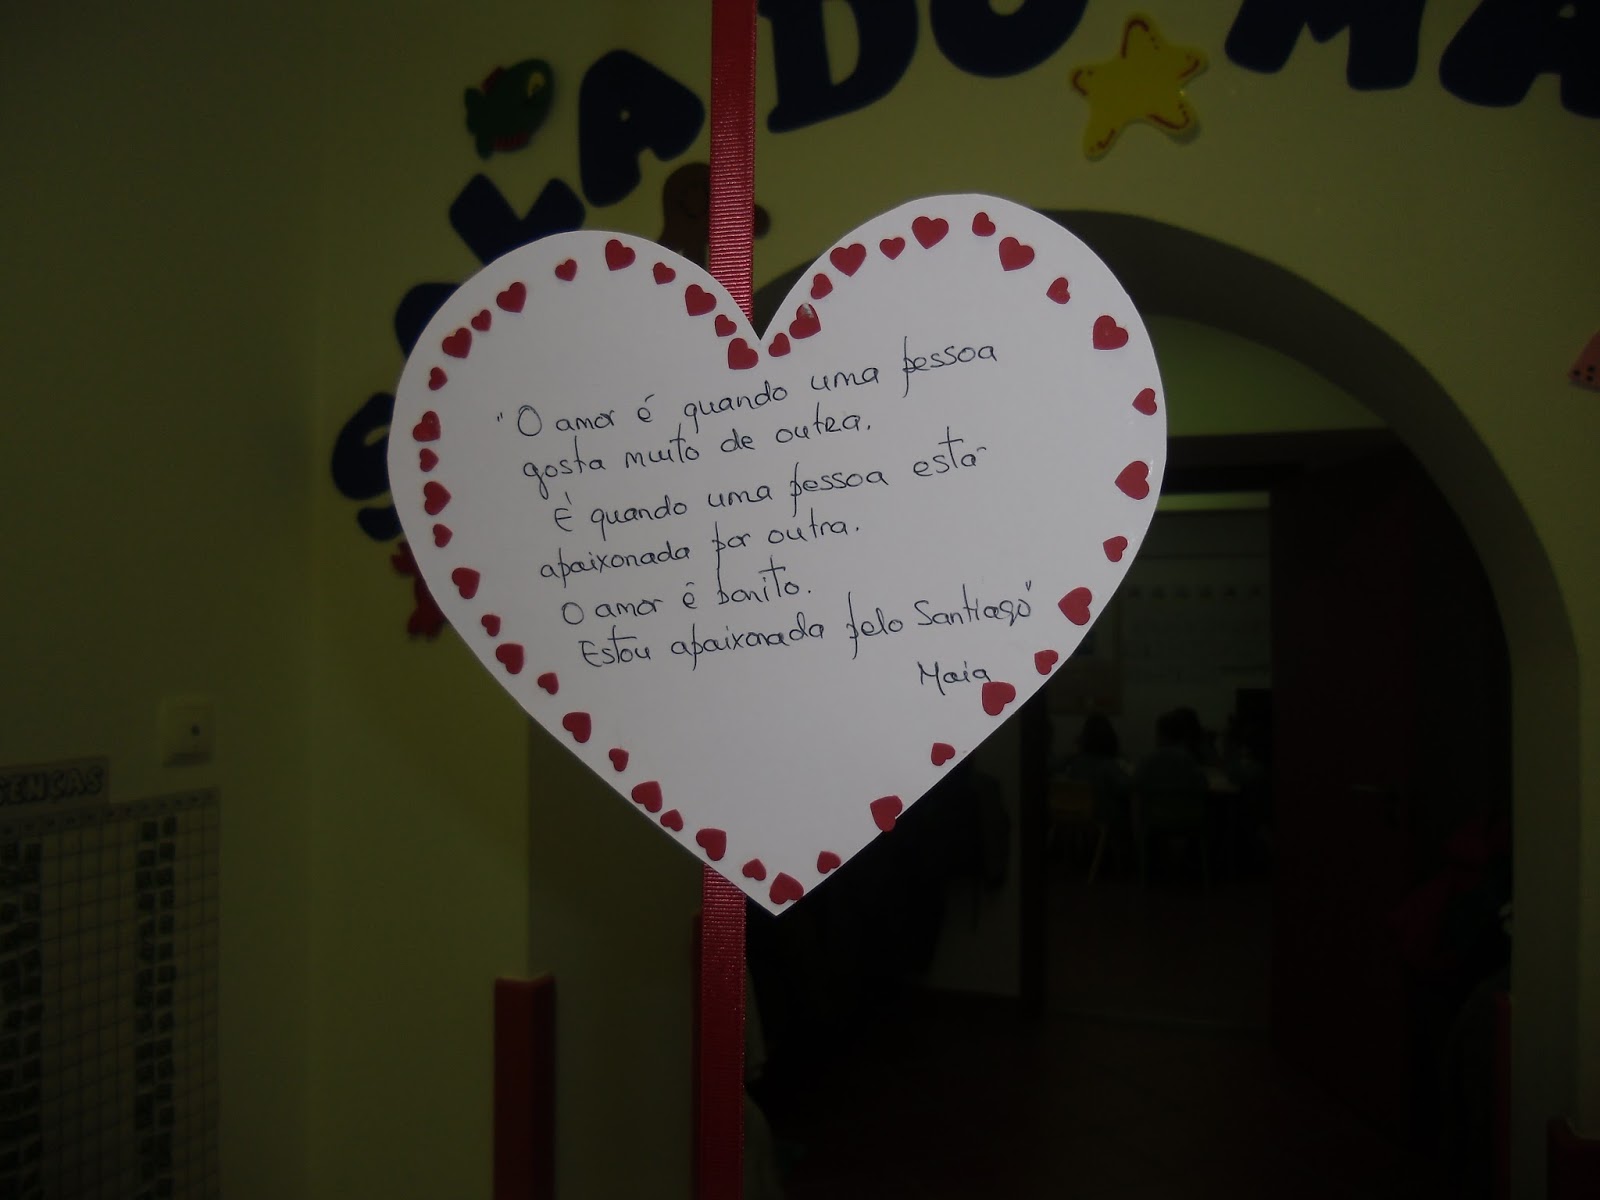 SALA DO MA
"O amor é quando uma pessoa
gosta muito de outra.
É quando uma pessoa está
apaixonada por outra.
O amor é bonito.
Estou apaixonada pelo Santiago"
Maia
SENÇAS